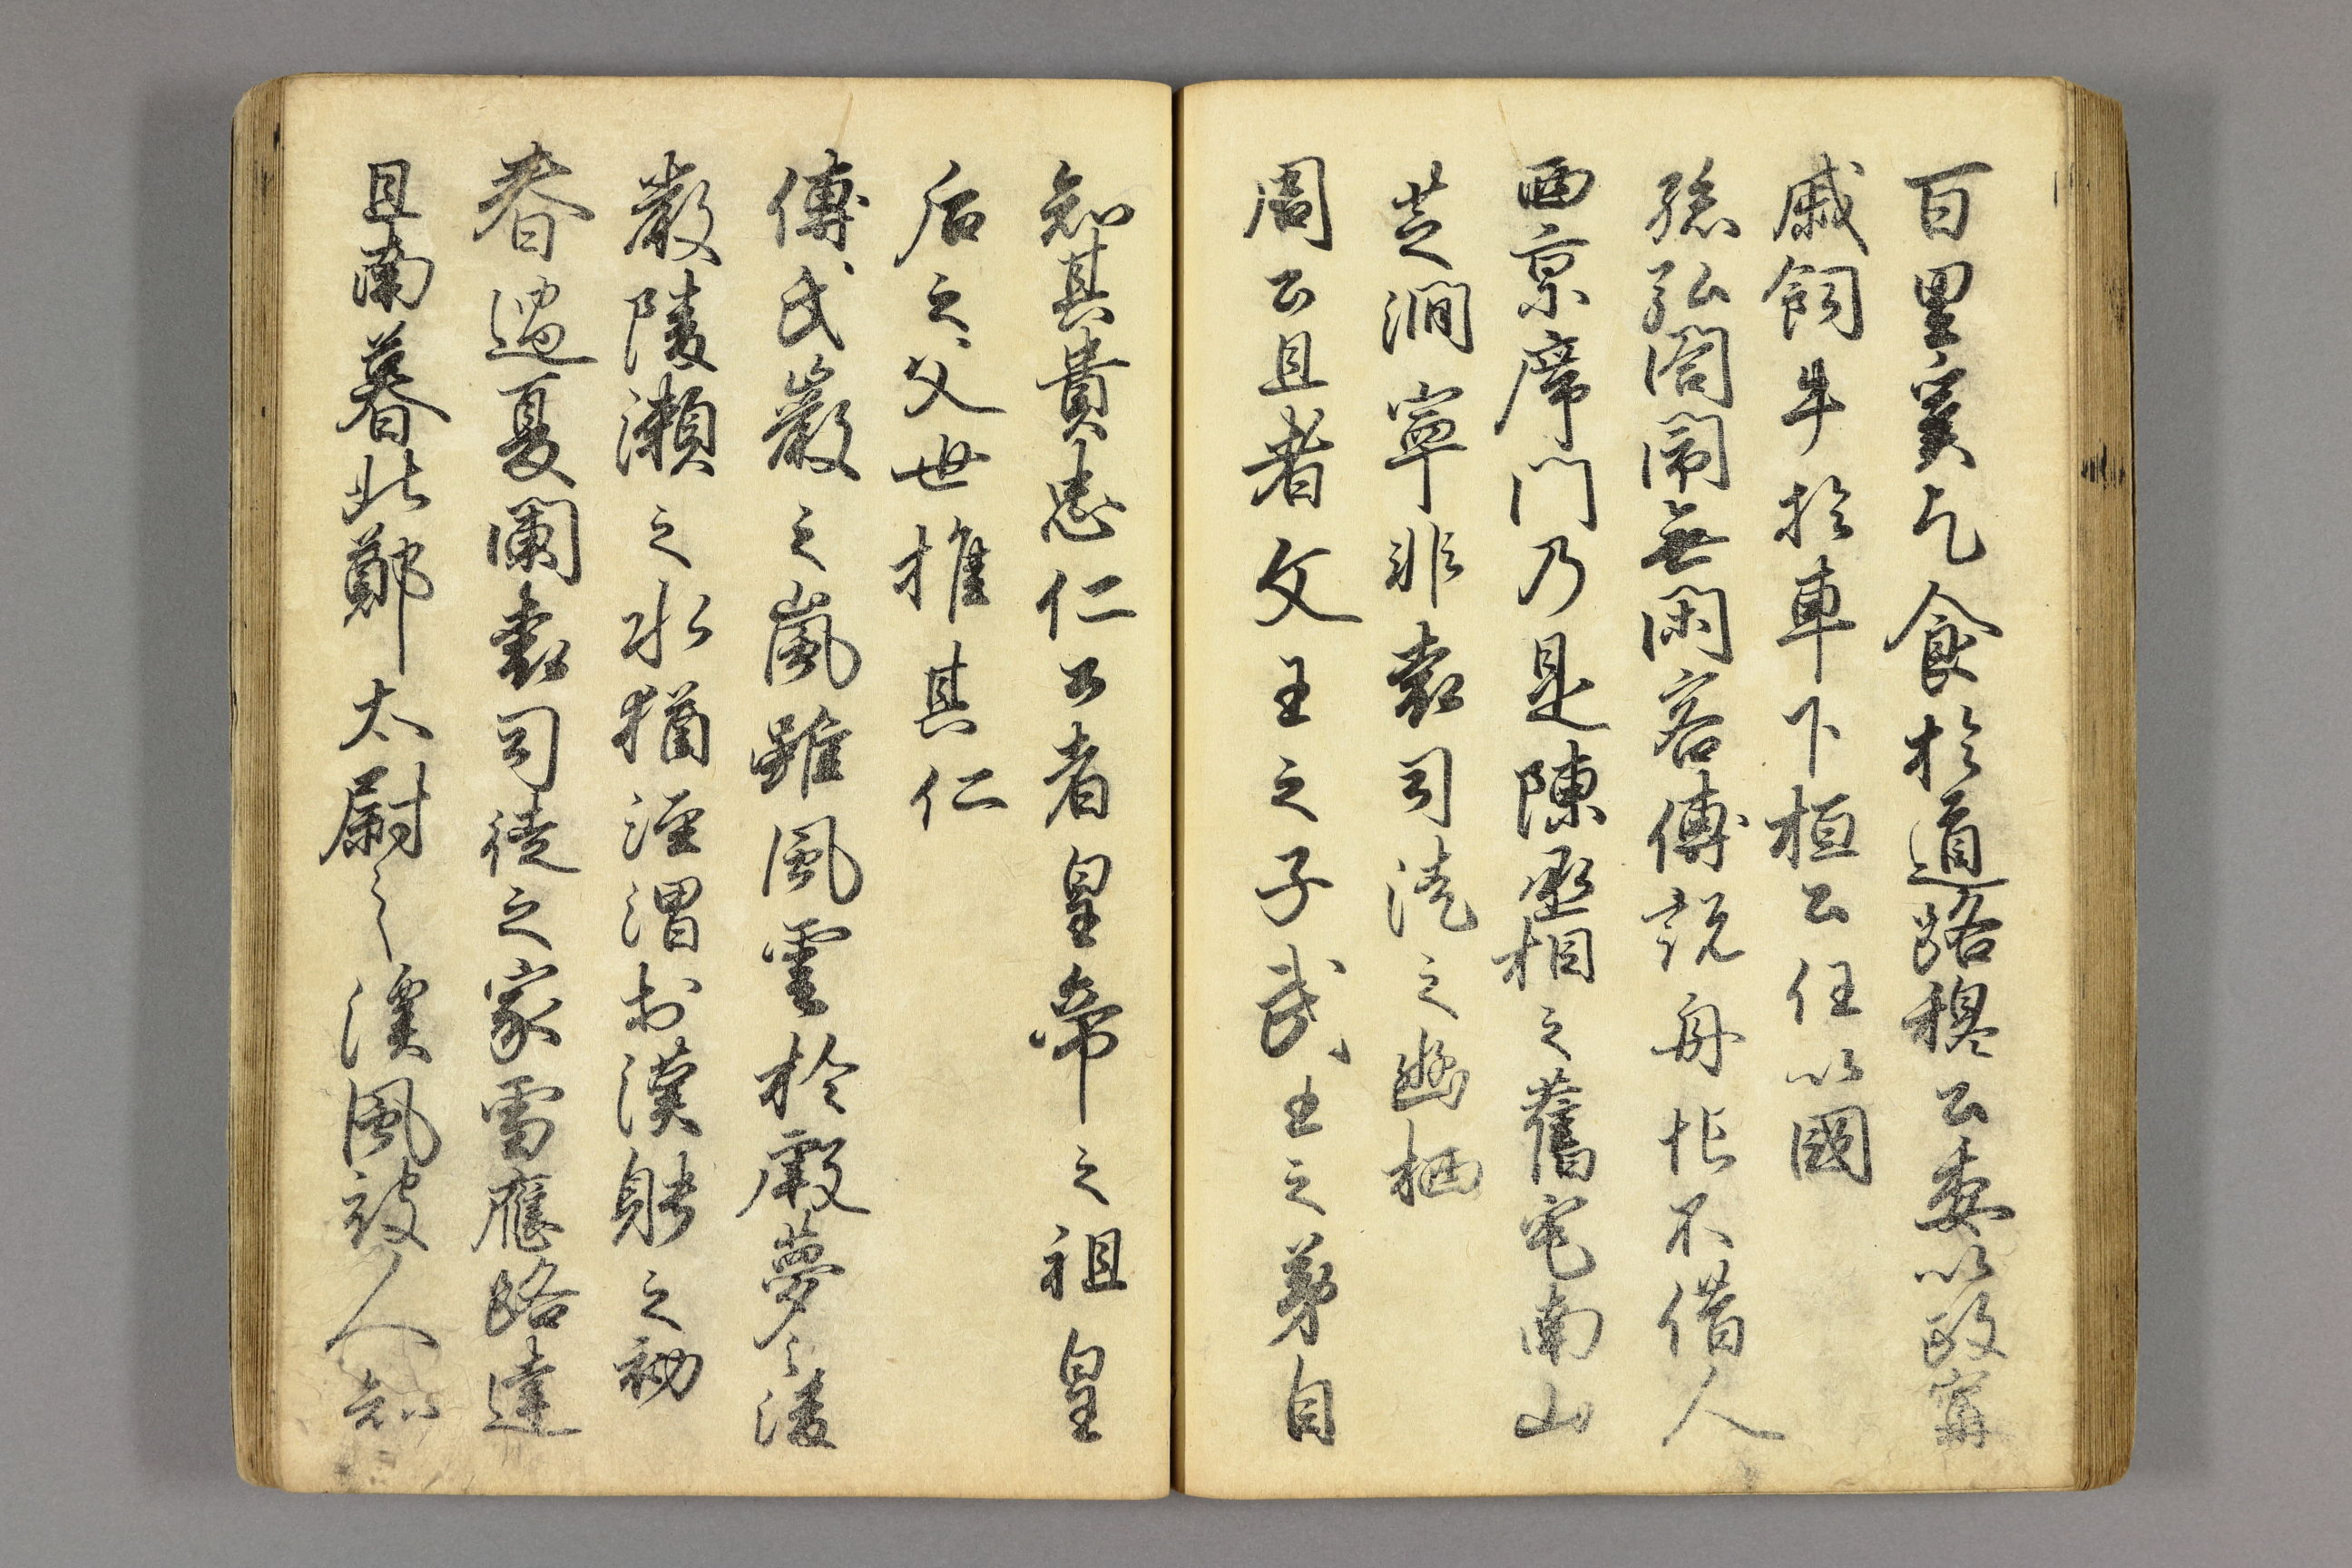 百里奚乞食於道路穆公委以政寗
戚飼牛於車下桓公任以國
孫弘閤閙無閑客傅説舟忙不借人
西京席門乃是陳丞相之舊宅南山
芝澗寧非袁司徒之幽栖
周公旦者文王之子武王之弟自
知其貴忠仁公者皇帝之祖皇
后之父世推其仁
傅氏巖之嵐雖風雲於殷夢之後
嚴陵瀬之水猶涇渭於漢聘之初
春過夏闌袁司徒之家雪應路達
旦南暮北鄭太尉之溪風被人知